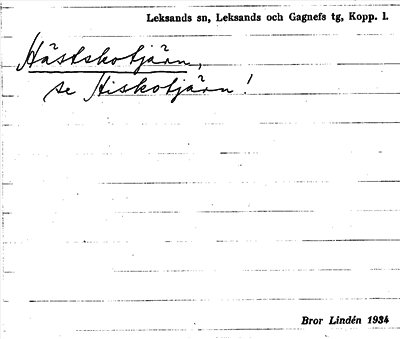 Leksands sn, Leksands och Gagnefs tg, Kopp. l.
Hästskotjärn,
se Hiskotjärn!
Bror Lindén 1934